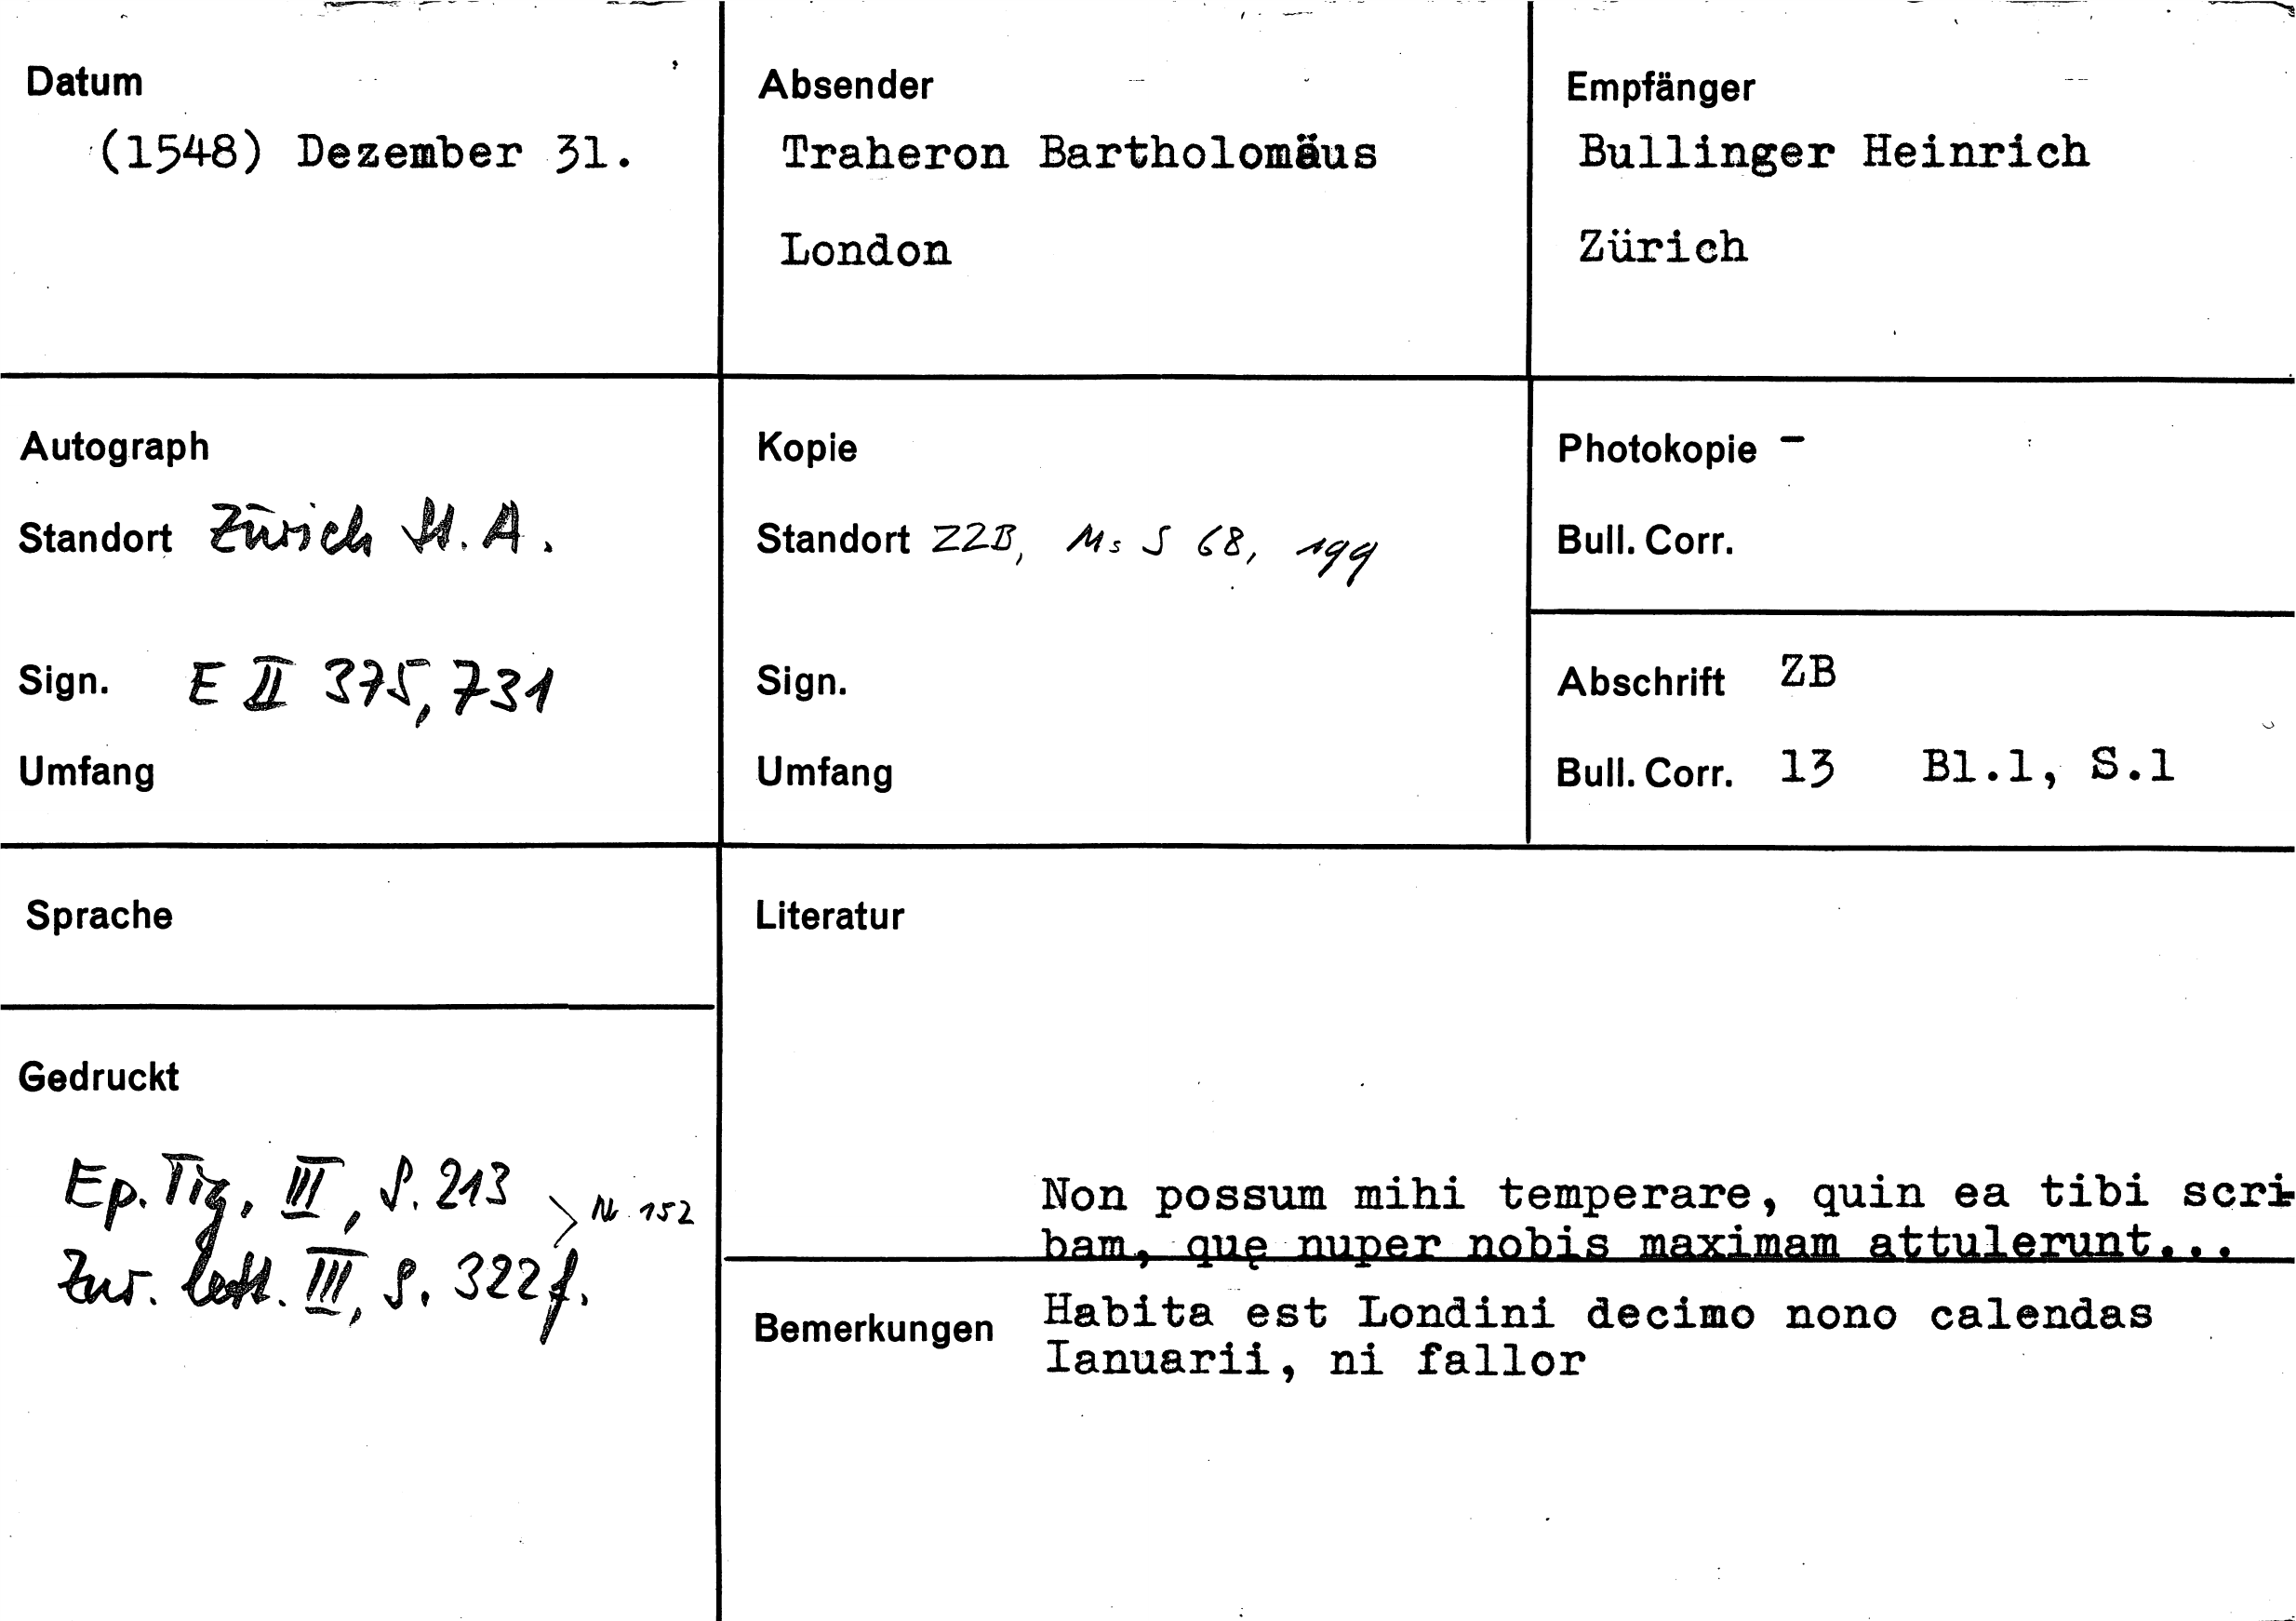 Datum
(1548) Dezember 31.
Absender
Traheron Bartholomäus
London
Empfänger
Bullinger Heinrich
Zürich
Autograph
Standort Zürich St. A.
Sign. E II 375, 731
Umfang
Kopie
Standort ZZB, Ms S 68, 199
Sign.
Umfang
Photokopie -
Bull. Corr.
Abschrift ZB
Bull. Corr. 13 Bl.1, S.1
Sprache
Gedruckt
Ep. Tig. III, S. 213
> Nr. 152
Zur. lett. III, S. 322 f.
Literatur
Non possum mihi temperare, quin ea tibi scri-
bam, quę nuper nobis maximam attulerunt...
Bemerkungen
Habita est Londini decimo nono calendas
Ianuarii, ni fallor